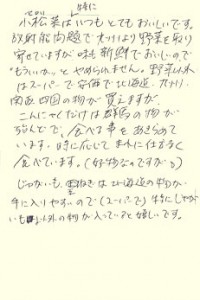 小松菜はいつもとてもおいしいです。
放射能問題で 野菜を取り
寄せていますが 味も 新鮮でおいしいので
"もういいか"と やめられません。野菜以外
はスーパーで 安価で 北海道
関西 四国の物が 買えますが
こんにゃくだけは 群馬の物が
ほとんどで、食べる事をあきらめて
います。時に応じて まれに仕方なく
食べています。(好物なのですが)
じゃがいも 玉ねぎは 北海道の物が
手に入りやすいので(スーパーで) 特にじゃが
いも 以外の物が入っていると嬉しいです。